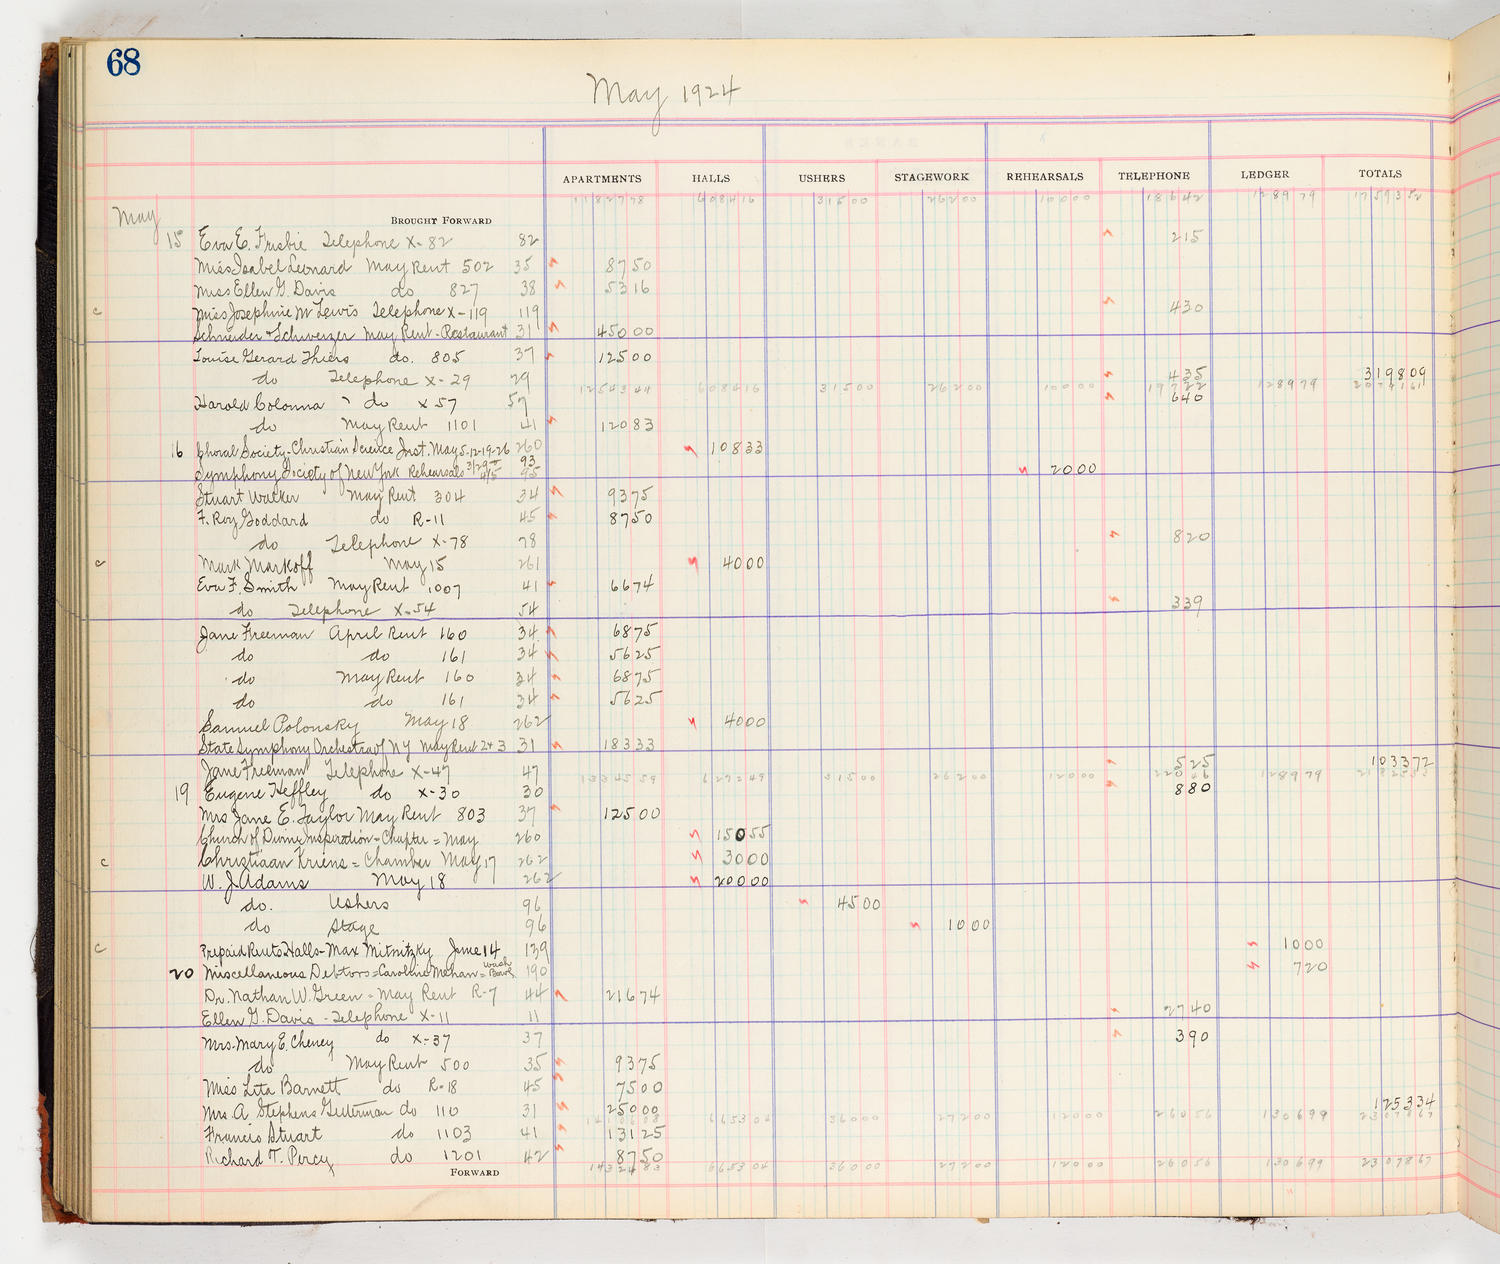 68
May 1924
APARTMENTS HALLS USHERS STAGEWORK REHEARSALS TELEPHONE LEDGER TOTALS
11827 78 6084 16 315 00 262 00 100 00 186 42 1289 79 17593 52
May BROUGHT FORWARD
15 Eva E. Frisbie Telephone X-82 82 2 15
Miss Isabel Leonard May Rent 502 35 87 50
Miss Ellen G. Davis do 827 38 53 16
c Miss Josephine M Lewis Telephone X-119 119 4 30
Schneider & Schwerzer May Rent-Restaurant 31 450 00
Louise Gerard Thiers do. 805 37 125 00
do Telephone X-29 29 4 35 3198 09
12543 44 6084 16 315 00 262 00 100 00 197 22 1289 79
Harold Colonna do X57 57 6 40
do May Rent 1101 41 120 83
16 Choral Society-Christian Science Inst. May 5-12-19-26 260 108 33
93
Symphony Society of New York Rehearsals 3/29 4/5 95 20 00
Stuart Walker May Rent 304 34 93 75
F. Roy Goddard do R-11 45 87 50
do Telephone X-78 78 8 20
c Mark Markoff May 15 261 40 00
Eva F. Smith May Rent 1007 41 66 74
do Telephone X-54 54 3 39
Jane Freeman April Rent 160 34 68 75
do do 161 34 56 25
do May Rent 160 34 68 75
do do 161 34 56 25
Samuel Polonsky May 18 262 40 00
State Symphony Orchestra of N Y May Rent 2+3 31 183 33
Jane Freeman Telephone X-47 47 5 25 1033 72
13345 59 6272 49 315 00 262 00 120 00 220 46 1289 79
19 Eugene Heffley do X-30 30 8 80
Mrs Jane E. Taylor May Rent 803 37 125 00
Church of Divine Inspiration-Chapter = May 260 150 55
c Christiaan Kriens = Chamber May 17 262 30 00
W. J Adams May 18 262 200 00
do. Ushers 96 45 00
do Stage 96 10 00
c Prepaid Rents Halls-Max Mitnitzky June 14 139 10 00
20 Miscellaneous Debtors = Caroline Mehan = Wash Bowl 190 7 20
Dr. Nathan W. Green = May Rent R-7 44 216 74
Ellen G. Davis - Telephone X-11 11 27 40
Mrs. Mary E. Cheney do X-37 37 3 90
do May Rent 500 35 93 75
Miss Lita Barnett do R-18 45 75 00
Mrs. A Stephens Guterman do 110 31 250 00 1253 34
6653 04 360 00 272 00 120 00 260 56 1306 99
Francis Stuart do 1103 41 131 25
Richard T. Percy do 1201 42 87 50
FORWARD 14324 83 6653 04 360 00 272 00 120 00 260 56 1306 99 23078 67